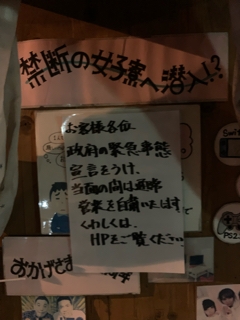 禁断の女子寮へ潜入!?
お客様各位
政府の緊急事態
宣言をうけ、
当面の間は通常
営業を自粛いたします
くわしくは、
HPをご覧ください
おかげさま